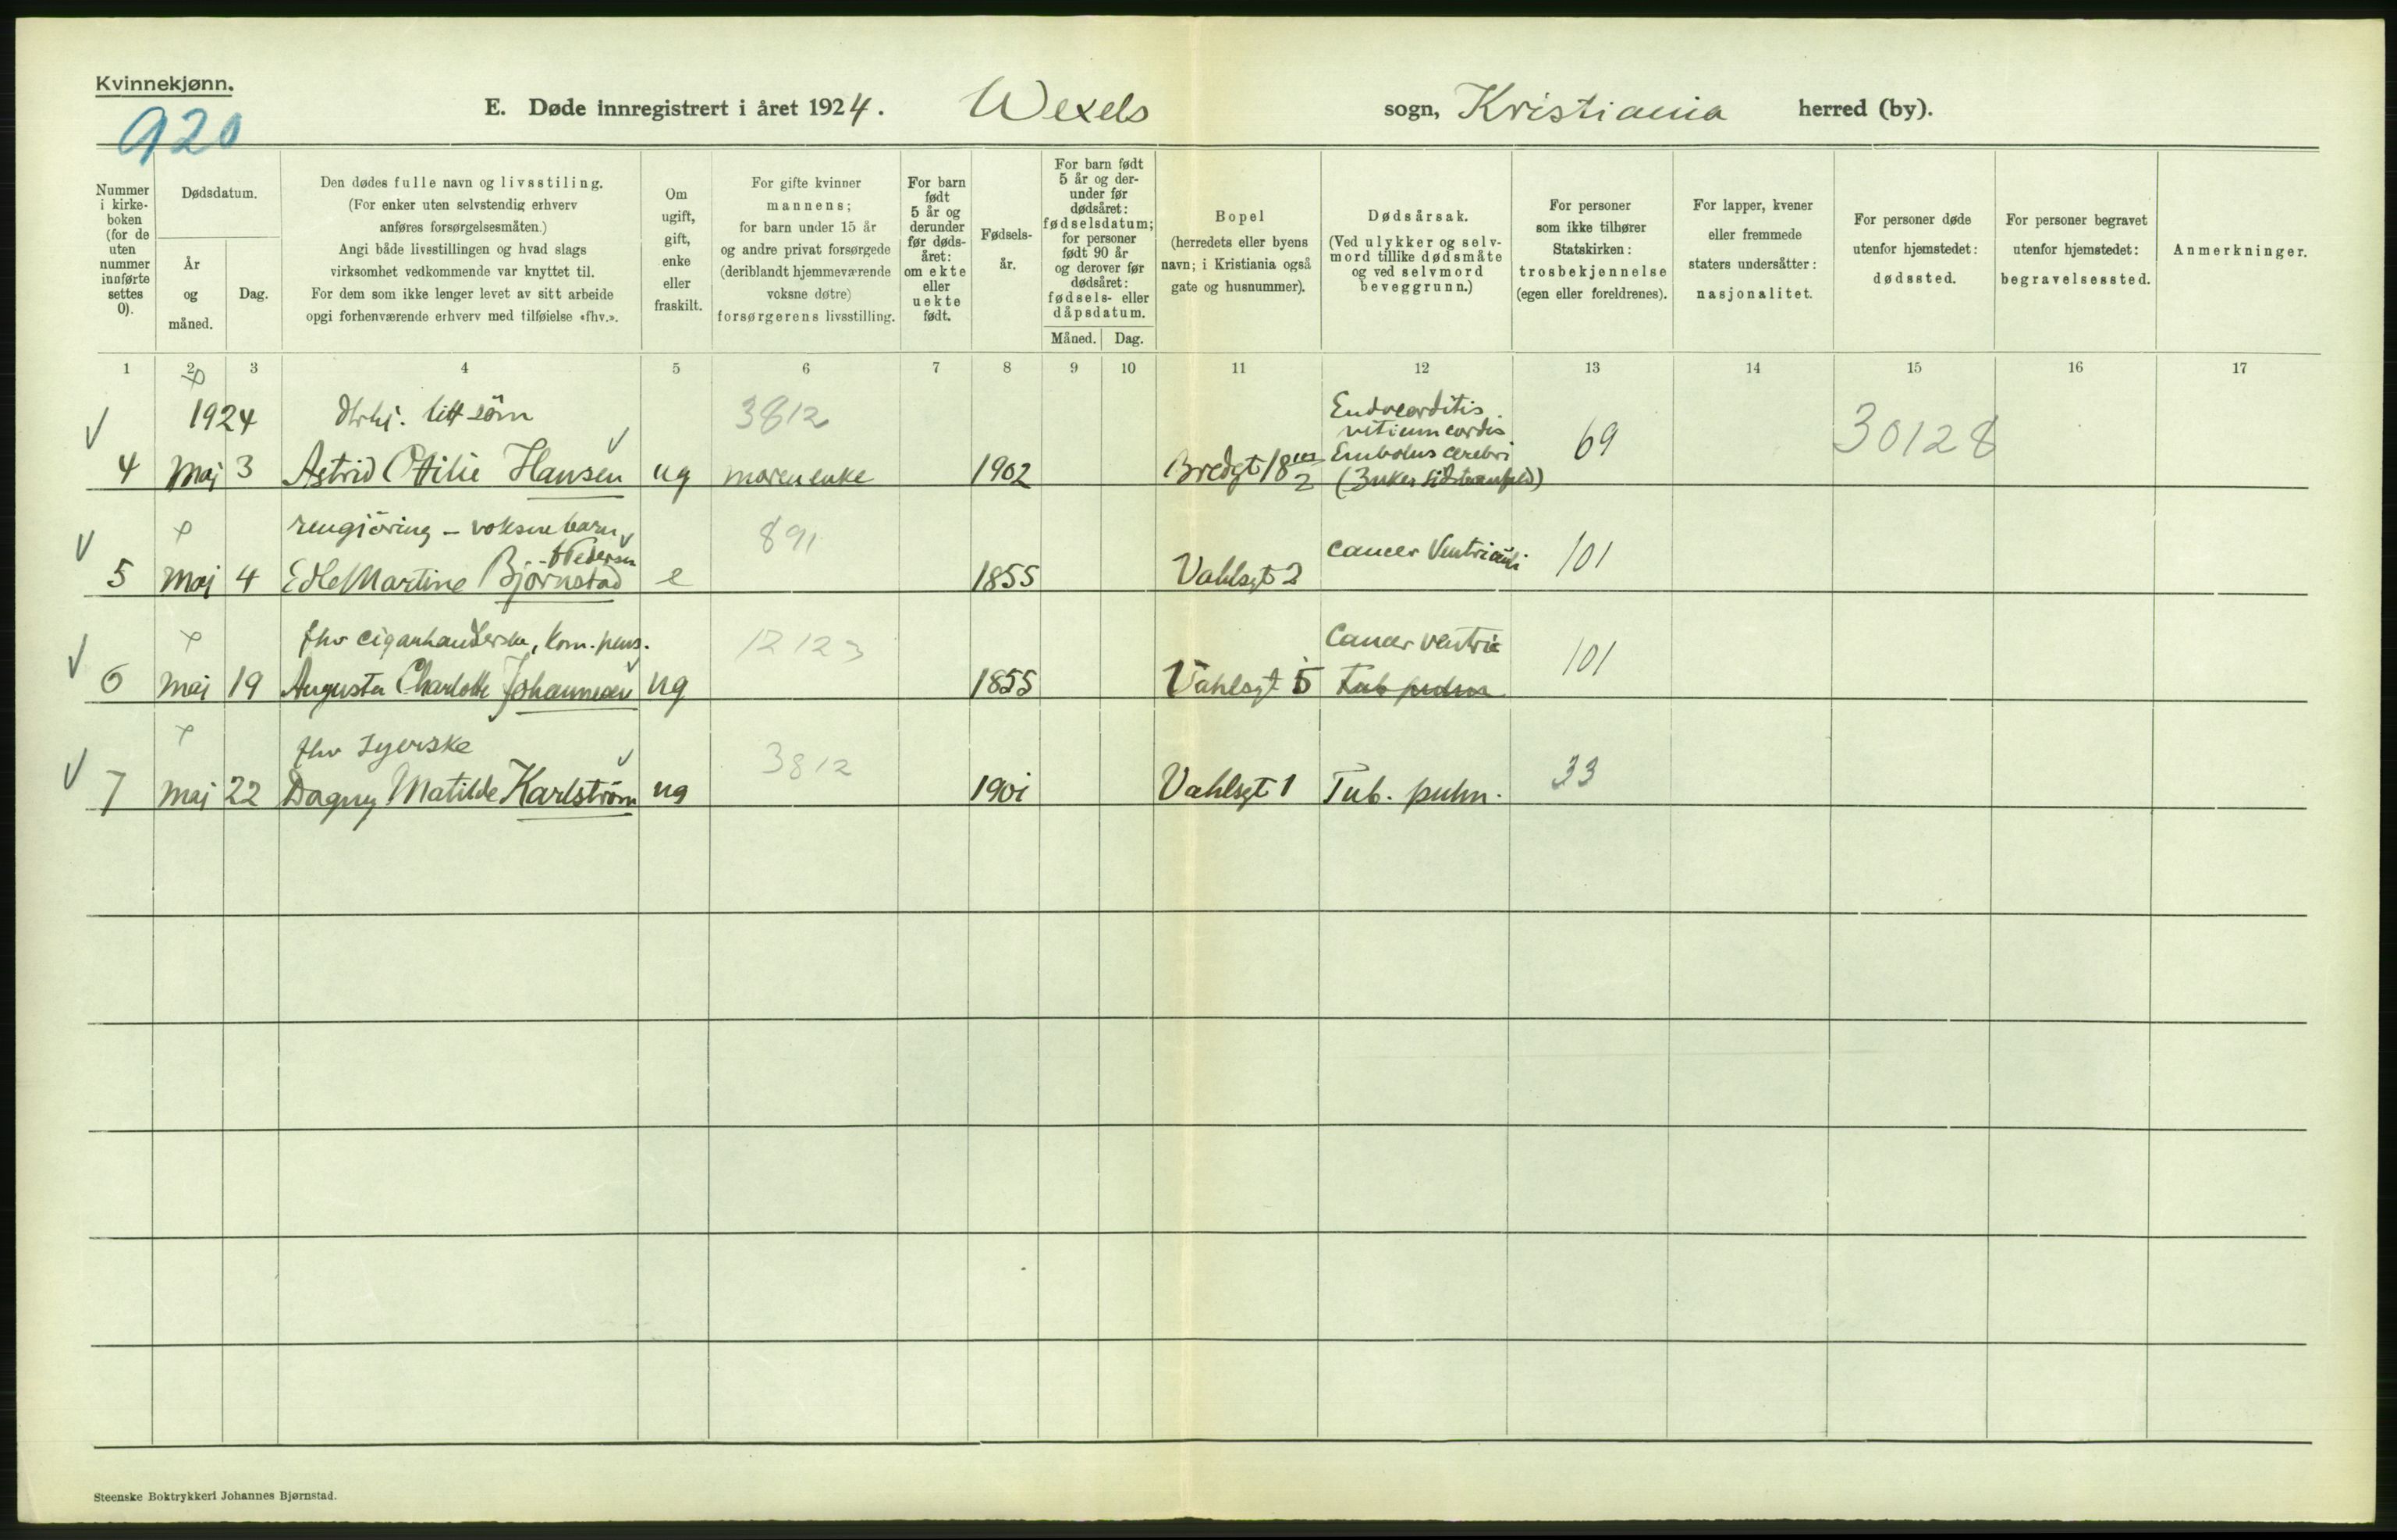 Kvinnekjønn.
920
E. Døde innregistrert i året 1924. Wexels sogn, Kristiania herred (by).
Nummer i kirke-boken (for de uten nummer innførte settes 0).
Dødsdatum.
År og måned.
Dag.
Den dødes fulle navn og livsstiling.
(For enker uten selvstendig erhverv
anføres forsørgelsesmåten.)
Angi både livsstillingen og hvad slags
virksomhet vedkommende var knyttet til.
For dem som ikke lenger levet av sitt arbeide
opgi forhenværende erhverv med tilføielse «fhv.».
Om
ugift,
gift,
enke
eller
fraskilt.
For gifte kvinner
mannens;
for barn under 15 år
og andre privat forsørgede
(deriblandt hjemmeværende
voksne døtre)
forsørgerens livsstilling.
For barn
født
5 år og
derunder
før døds-
året:
om ekte
eller
uekte
født.
Fødsels-
år.
For barn født
5 år og der-
under før
dødsåret:
fødselsdatum;
for personer
født 90 år
og derover før
dødsåret:
fødsels- eller
dåpsdatum.
Måned. Dag.
Bopel
(herredets eller byens
navn; i Kristiania også
gate og husnummer).
Dødsårsak.
(Ved ulykker og selv-
mord tillike dødsmåte
og ved selvmord
beveggrunn.)
For personer
som ikke tilhører
Statskirken:
trosbekjennelse
(egen eller foreldrenes).
For lapper, kvener
eller fremmede
staters undersåtter:
nasjonalitet.
For personer døde
utenfor hjemstedet:
dødssted.
For personer begravet
utenfor hjemstedet:
begravelsessted.
Anmerkninger.
1 2 3 4 5 6 7 8 9 10 11 12 13 14 15 16 17
1924 litt söm 3812 Endocarditis
vitium cordis 69 30128
4 Maj 3 Astrid Otilie Hansen ug moren enke 1902 Bredgt 18 Embolus cerebri
rengjöring - voksne barn 891
f Pedersen
5 Maj 4 Edle Martine Bjørnstad e 1855 Vahlsgt 2 Cancer Ventriculi 101
fhv cigarhandlerske, kom. pens. 12123 Cancer ventric
6 Maj 19 Augusta Charlotte Johannesen ug 1855 Vahlsgt 5 Tub pulm 101
fhv syerske 3812
7 Maj 22 Dagny Matilde Karlstrøm ug 1901 Vahlsgt 1 Tub. pulm. 33
Steenske Boktrykkeri Johannes Bjørnstad.